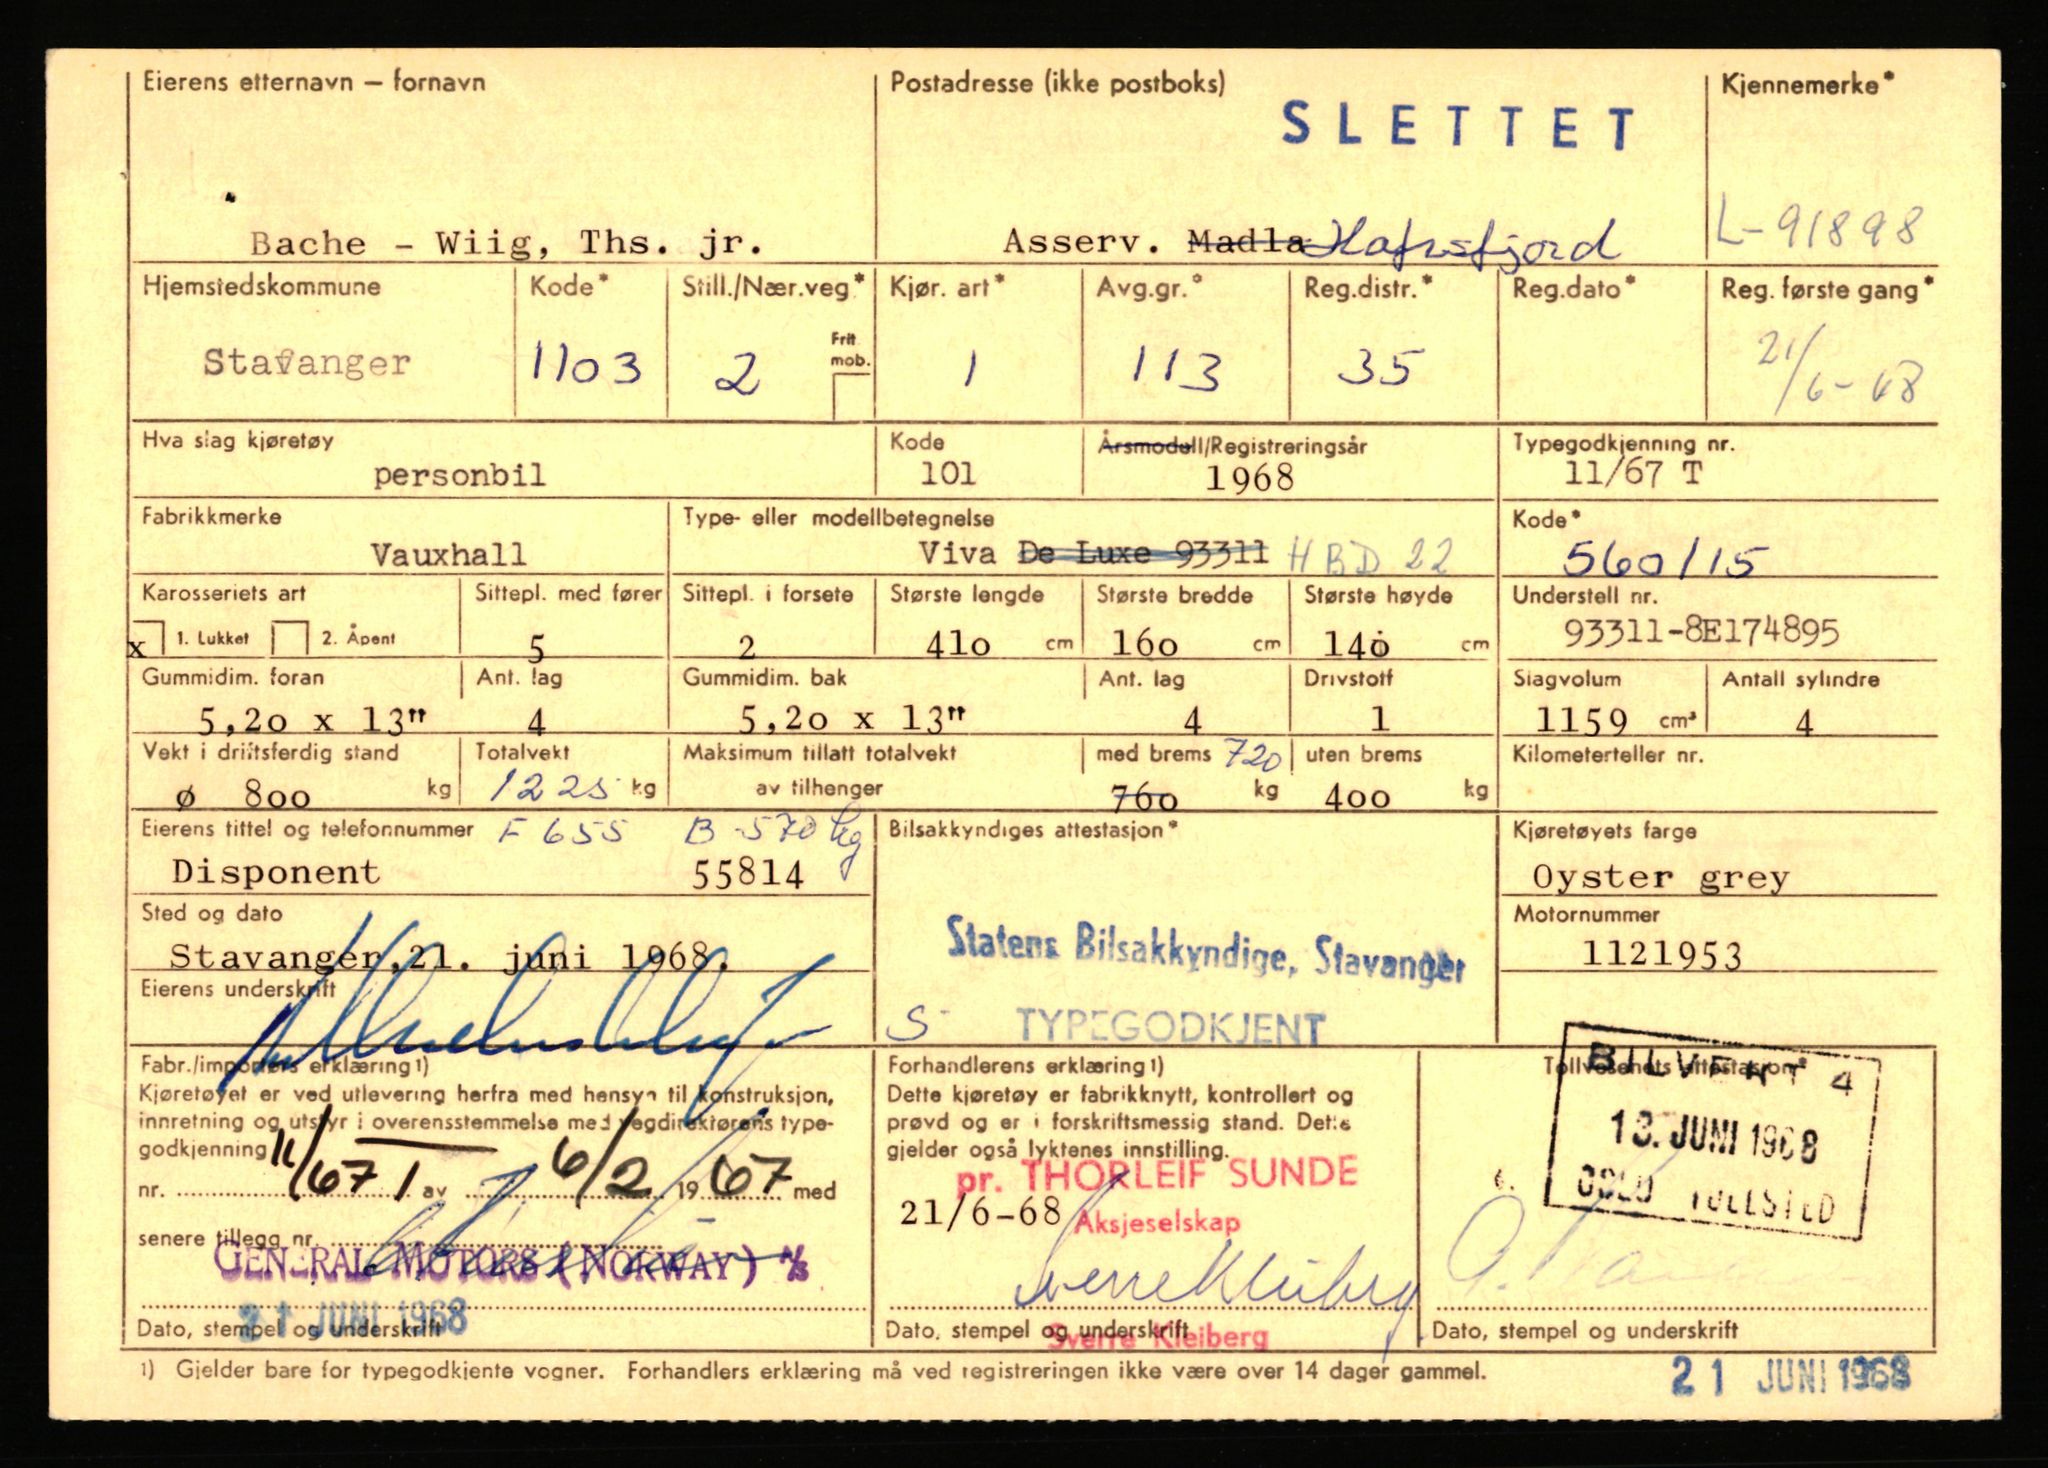 Eierens etternavn – fornavn Postadresse (ikke postboks) Kjennemerke*
SLETTET
Bache - Wiig, Ths. jr. Asserv. Madla Hafrsfjord L-91898
Hjemstedskommune Kode* Still./Nær.veg* Kjør. art* Avg.gr.° Reg.distr.* Reg.dato* Reg. første gang*
Frit. mob.
Stavanger 1103 2 1 113 35 21/6-68
Hva slag kjøretøy Kode Årsmodell/Registreringsår Typegodkjenning nr.
personbil 101 1968 11/67 T
Fabrikkmerke Type- eller modellbetegnelse Kode*
Vauxhall Viva De Luxe 93311 HBD 22 560115
Karosseriets art Sittepl. med fører Sittepl. i forsete Største lengde Største bredde Største høyde Understell nr.
x 1. Lukket 2. Åpent 5 2 410 cm 160 cm 140 cm 93311-8E174895
Gummidim. foran Ant. lag Gummidim. bak Ant. lag Drivstoff Slagvolum Antall sylindre
5,20 x 13" 4 5,20 x 13" 4 1 1159 cm³ 4
Vekt i driftsferdig stand Totalvekt Maksimum tillatt totalvekt med brems 720 uten brems Kilometerteller nr.
ø 800 kg 1225 kg av tilhenger 760 kg 400 kg
Eierens tittel og telefonnummer F 655 B-570 kg Bilsakkyndiges attestasjon* Kjøretøyets farge
Disponent 55814 Oyster grey
Sted og dato Motornummer
Stavanger,21. juni 1968. Statens Bilsakkyndige, Stavanger 1121953
Eierens underskrift
S TYPEGODKJENT
Fabr./importørs erklæring 1) Forhandlerens erklæring 1) Tollvesenets attestasjon*
Kjøretøyet er ved utlevering herfra med hensyn til konstruksjon,
innretning og utstyr i overensstemmelse med vegdirektørens type-
godkjenning
nr. 11/67 1 av 6/2 1967 med
senere tillegg nr.
GENERAL MOTORS (NORWAY) A/S
21 JUNI 1968
Dato, stempel og underskrift
Dette kjøretøy er fabrikknytt, kontrollert og
prøvd og er i forskriftsmessig stand. Dette
gjelder også lyktenes innstilling.
pr. THORLEIF SUNDE
21/6-68 Aksjeselskap
Sverre Kleiberg
Dato, stempel og underskrift
Sverre Kleiberg
BILVEKT 4
13. JUNI 1968
OSLO TOLLSTED
Dato, stempel og underskrift
1) Gjelder bare for typegodkjente vogner. Forhandlers erklæring må ved registreringen ikke være over 14 dager gammel.
21 JUNI 1968